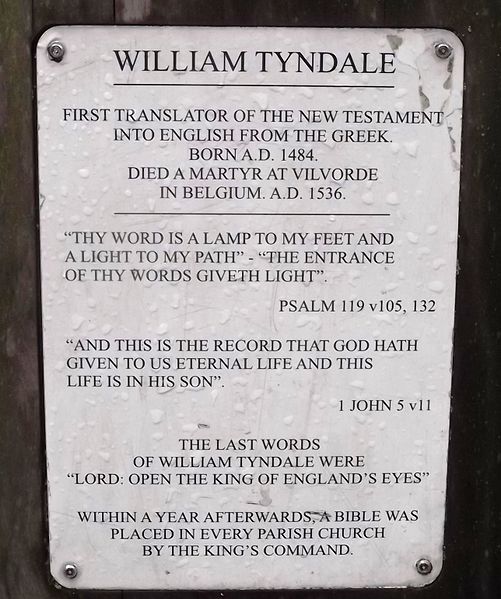 WILLIAM TYNDALE
FIRST TRANSLATOR OF THE NEW TESTAMENT
INTO ENGLISH FROM THE GREEK.
BORN A.D. 1484.
DIED A MARTYR AT VILVORDE
IN BELGIUM. A.D. 1536.
“THY WORD IS A LAMP TO MY FEET AND
A LIGHT TO MY PATH” - “THE ENTRANCE
OF THY WORDS GIVETH LIGHT”.
PSALM 119 v105, 132
“AND THIS IS THE RECORD THAT GOD HATH
GIVEN TO US ETERNAL LIFE AND THIS
LIFE IS IN HIS SON”.
1 JOHN 5 v11
THE LAST WORDS
OF WILLIAM TYNDALE WERE
“LORD: OPEN THE KING OF ENGLAND’S EYES”
WITHIN A YEAR AFTERWARDS, A BIBLE WAS
PLACED IN EVERY PARISH CHURCH
BY THE KING’S COMMAND.